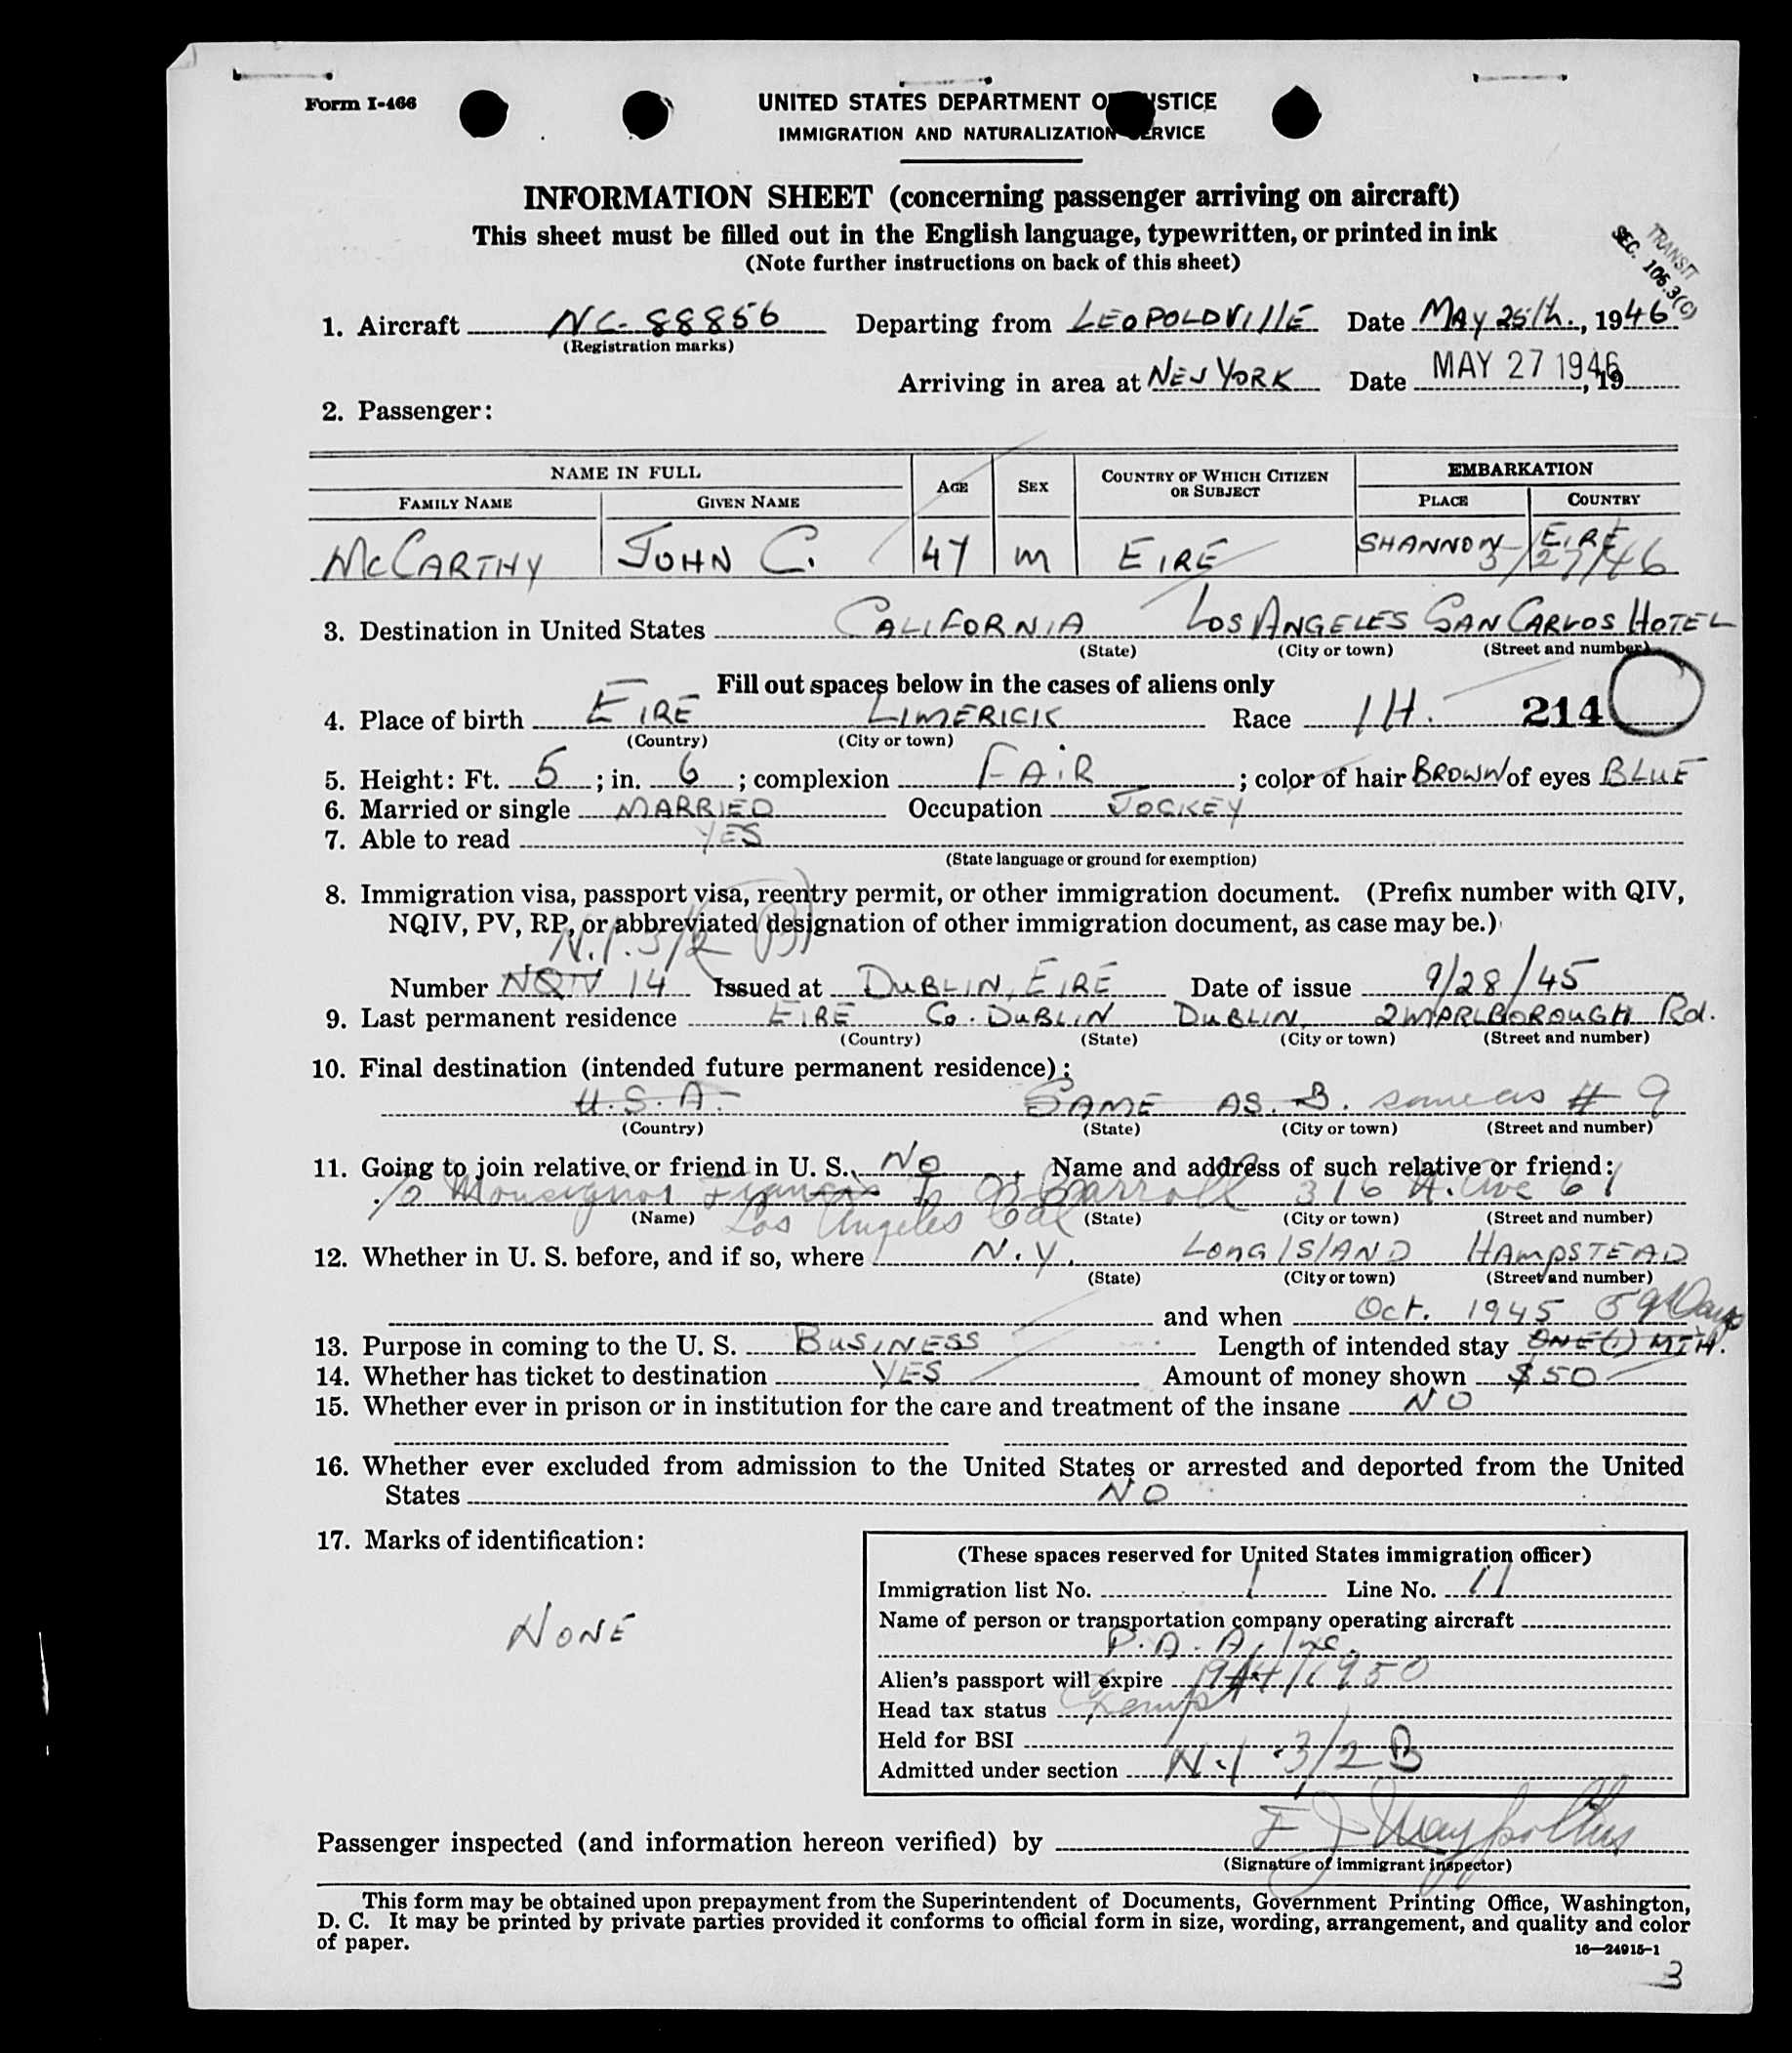 Form I-466
UNITED STATES DEPARTMENT O STICE
IMMIGRATION AND NATURALIZATION ERVICE
INFORMATION SHEET (concerning passenger arriving on aircraft)
This sheet must be filled out in the English language, typewritten, or printed in ink
(Note further instructions on back of this sheet)
TRANSIT
SEC. 106.3(C)
1. Aircraft NC-88856 Departing from LEOPOLDVILLE Date MAY 25th., 1946
(Registration marks)
Arriving in area at NEW YORK Date MAY 27 1946, 19
2. Passenger:
NAME IN FULL AGE SEX COUNTRY OF WHICH CITIZEN OR SUBJECT EMBARKATION
FAMILY NAME GIVEN NAME PLACE COUNTRY
McCARTHY JOHN C. 47 M EIRE SHANNON EIRE
/27/46
3. Destination in United States CALIFORNIA LOS ANGELES SAN CARLOS HOTEL
(State) (City or town) (Street and number)
Fill out spaces below in the cases of aliens only
4. Place of birth EIRE LIMERICK Race IH. 214
(Country) (City or town)
5. Height: Ft. 5; in. 6; complexion FAIR; color of hair BROWN of eyes BLUE
6. Married or single MARRIED Occupation JOCKEY
7. Able to read YES
(State language or ground for exemption)
8. Immigration visa, passport visa, reentry permit, or other immigration document. (Prefix number with QIV,
NQIV, PV, RP, or abbreviated designation of other immigration document, as case may be.)
N.I. 3/2 (B)
Number NQIV 14 Issued at DUBLIN, EIRE Date of issue 9/28/45
9. Last permanent residence EIRE Co. DUBLIN DUBLIN 2 MARLBOROUGH Rd.
(Country) (State) (City or town) (Street and number)
10. Final destination (intended future permanent residence):
U.S.A. SAME AS. 3. same as # 9
(Country) (State) (City or town) (Street and number)
11. Going to join relative or friend in U. S. NO Name and address of such relative or friend:
c/o Monsignor Francis J. Carroll 316 N. Ave 61
(Name) (State) (City or town) (Street and number)
Los Angeles Cal
12. Whether in U. S. before, and if so, where N.Y. LONG ISLAND HAMPSTEAD
(State) (City or town) (Street and number)
and when Oct. 1945 59 Days
13. Purpose in coming to the U. S. BUSINESS Length of intended stay ONE (1) MTH.
14. Whether has ticket to destination YES Amount of money shown $50
15. Whether ever in prison or in institution for the care and treatment of the insane NO
16. Whether ever excluded from admission to the United States or arrested and deported from the United
States NO
17. Marks of identification:
NONE
(These spaces reserved for United States immigration officer)
Immigration list No. 1 Line No. 11
Name of person or transportation company operating aircraft
P.A.A. Inc.
Alien's passport will expire 1950
Head tax status Exempt
Held for BSI
Admitted under section N.I. 3/2 B
Passenger inspected (and information hereon verified) by
(Signature of immigrant inspector)
This form may be obtained upon prepayment from the Superintendent of Documents, Government Printing Office, Washington,
D. C. It may be printed by private parties provided it conforms to official form in size, wording, arrangement, and quality and color
of paper.
16—24915-1
3